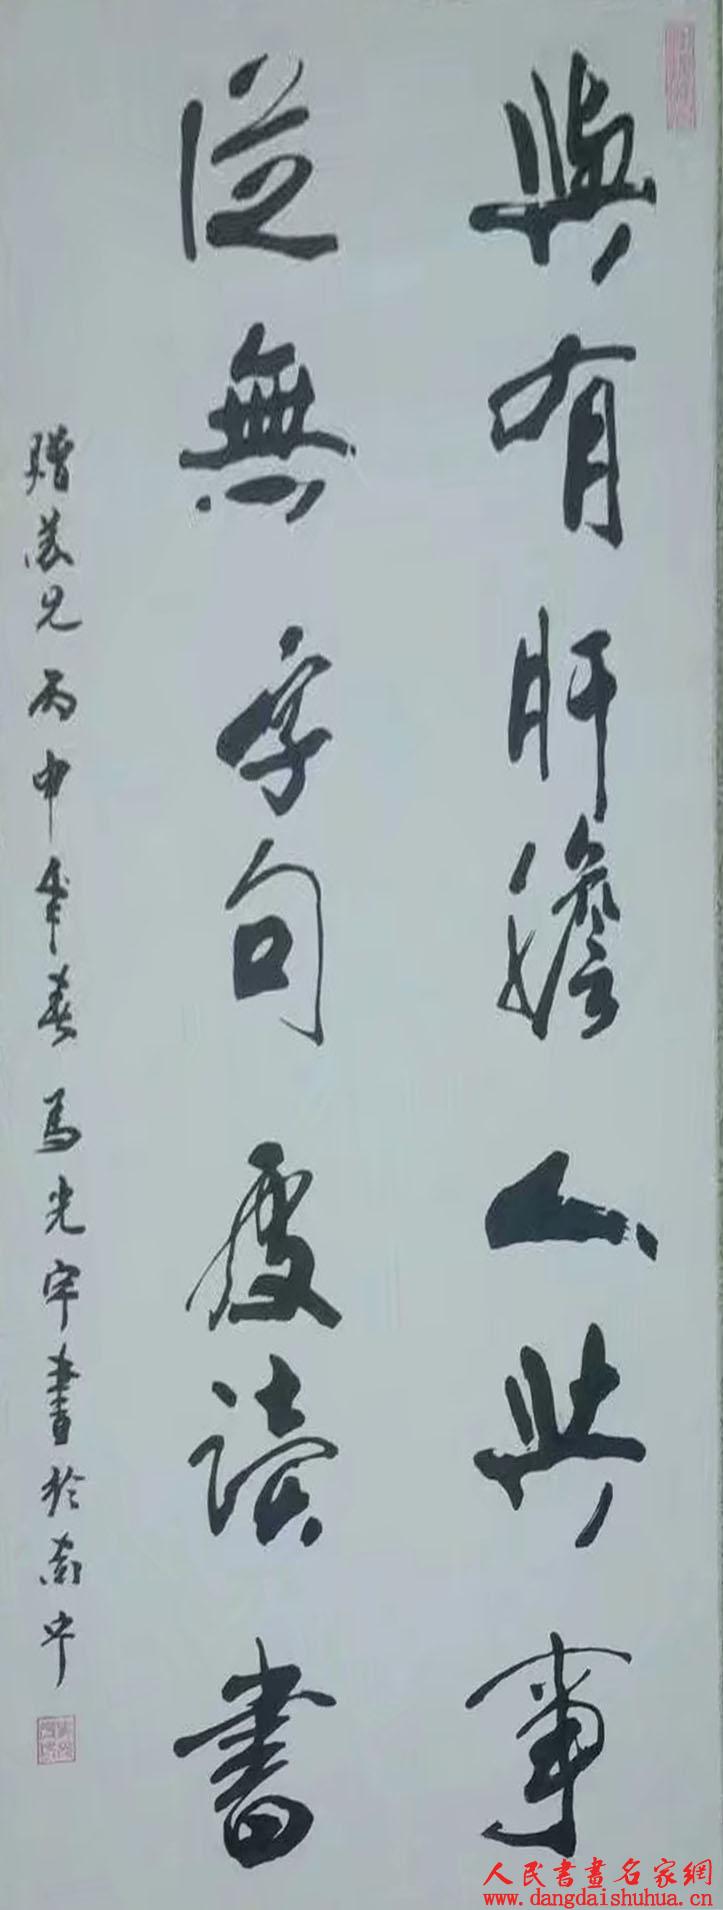 與有肝膽人興事
從無字句處讀書
贈義兄 丙申年春 馬光宇書於南中
人民書畫名家網
www.dangdaishuhua.cn